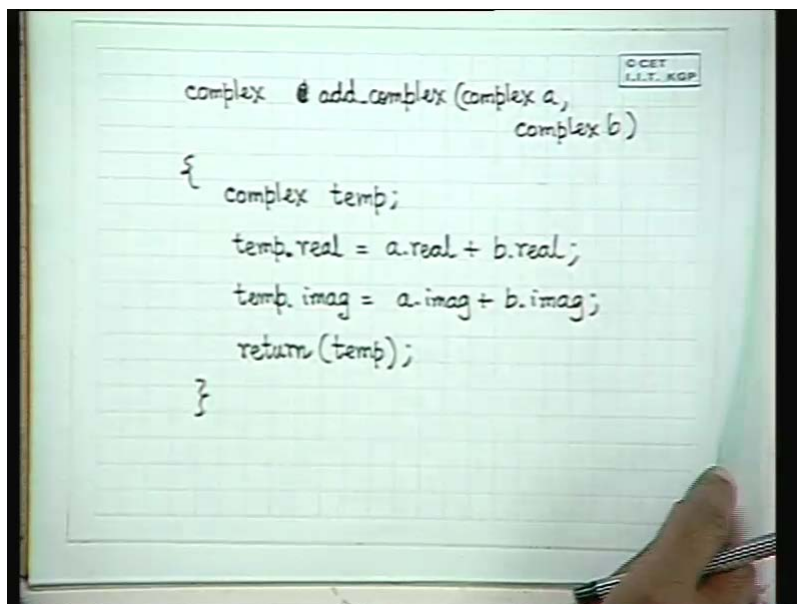 © CET
I.I.T. KGP
complex add_complex (complex a,
complex b)
{
complex temp;
temp.real = a.real + b.real;
temp.imag = a.imag + b.imag;
return (temp);
}